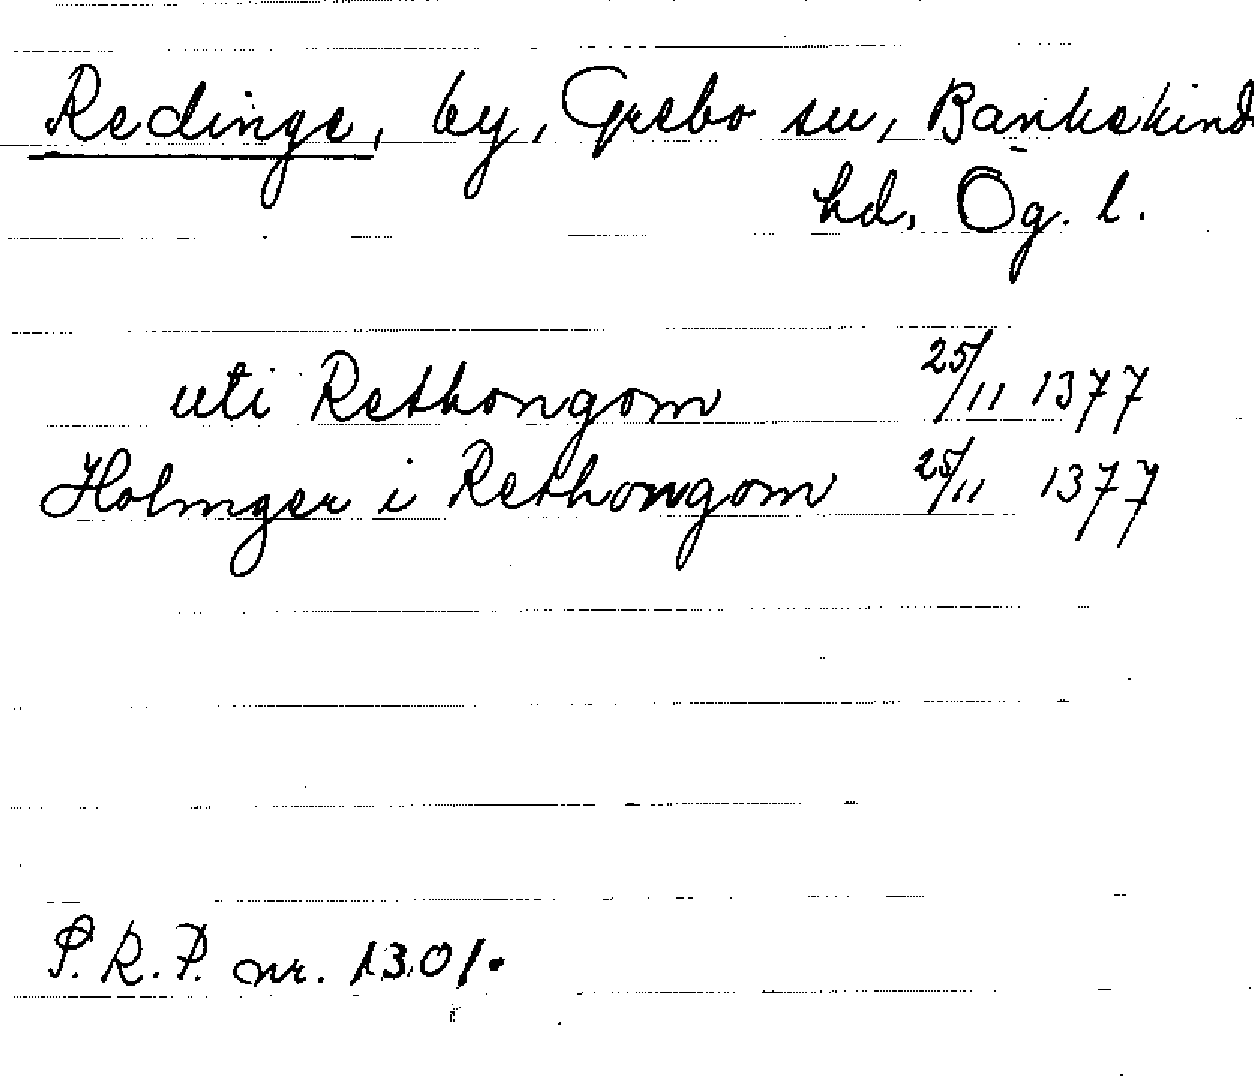 Redinge, by, Grebo sn, Bankekind
hd, Ög. l.
uti Rethongom 25/11 1377
Holmger i Rethongom 25/11 1377
P.R.P. nr. 1301.